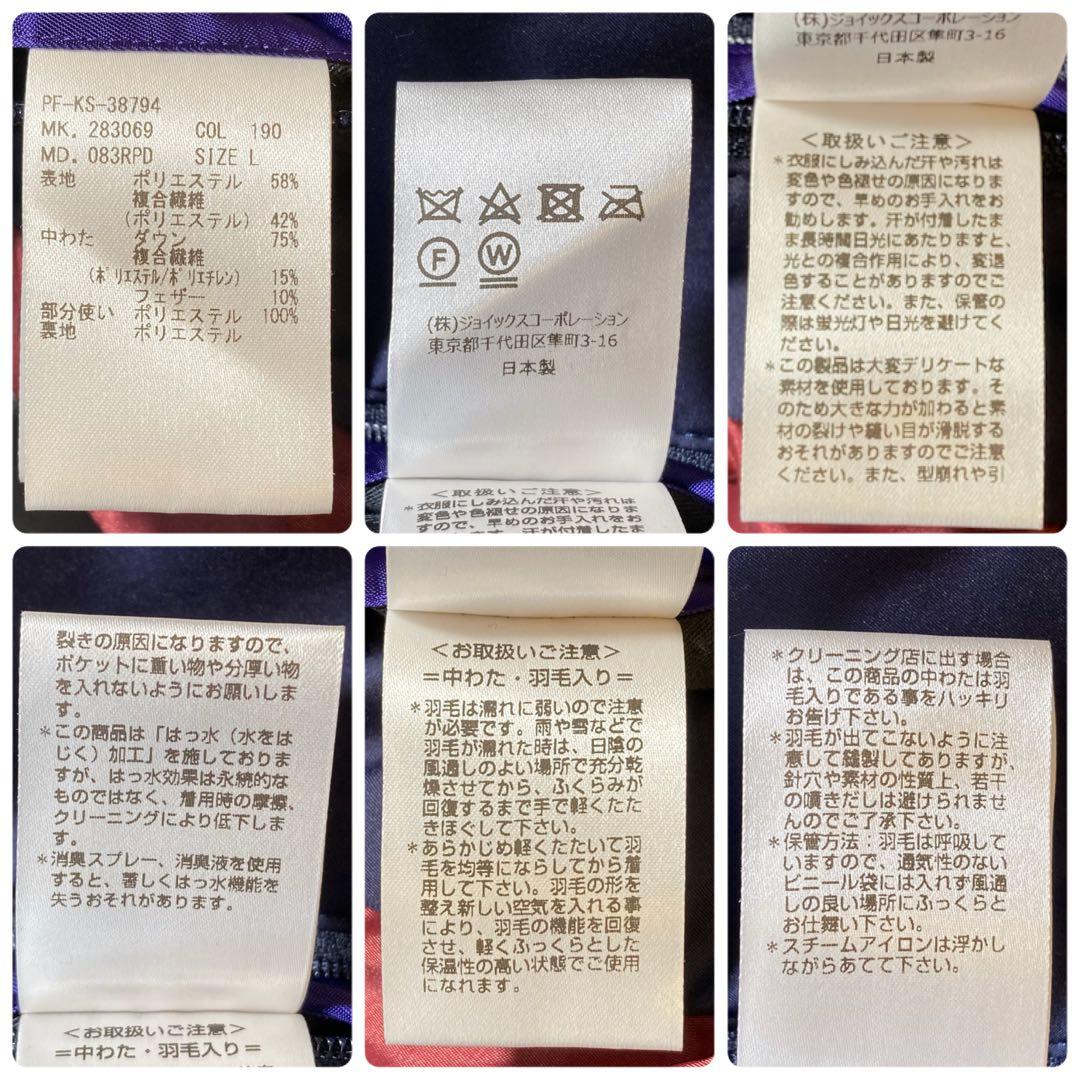 PF-KS-38794
MK. 283069 COL 190
MD. 083RPD SIZE L
表地 ポリエステル 58%
複合繊維
(ポリエステル) 42%
中わた ダウン 75%
複合繊維
(ポリエステル/ポリエチレン) 15%
フェザー 10%
部分使い ポリエステル 100%
裏地 ポリエステル
F W
(株)ジョイックスコーポレーション
東京都千代田区隼町3-16
日本製
<取扱いご注意>
*衣服にしみ込んだ汗や汚れは
変色や色褪せの原因になりま
すので、早めのお手入れをお
勧めします。汗が付着したま
(株)ジョイックスコーポレーション
東京都千代田区隼町3-16
日本製
<取扱いご注意>
*衣服にしみ込んだ汗や汚れは
変色や色褪せの原因になりま
すので、早めのお手入れをお
勧めします。汗が付着したま
ま長時間日光にあたりますと、
光との複合作用により、変退
色することがありますのでご
注意ください。また、保管の
際は蛍光灯や日光を避けてく
ださい。
*この製品は大変デリケートな
素材を使用しております。そ
のため大きな力が加わると素
材の裂けや縫い目が滑脱する
おそれがありますのでご注意
ください。また、型崩れや引
裂きの原因になりますので、
ポケットに重い物や分厚い物
を入れないようにお願いしま
す。
*この商品は「はっ水(水をは
じく)加工」を施しておりま
すが、はっ水効果は永続的な
ものではなく、着用時の摩擦、
クリーニングにより低下しま
す。
*消臭スプレー、消臭液を使用
すると、著しくはっ水機能を
失うおそれがあります。
<お取扱いご注意>
=中わた・羽毛入り=
<お取扱いご注意>
=中わた・羽毛入り=
*羽毛は濡れに弱いので注意
が必要です。雨や雪などで
羽毛が濡れた時は、日陰の
風通しのよい場所で充分乾
燥させてから、ふくらみが
回復するまで手で軽くたた
きほぐして下さい。
*あらかじめ軽くたたいて羽
毛を均等にならしてから着
用して下さい。羽毛の形を
整え新しい空気を入れる事
により、羽毛の機能を回復
させ、軽くふっくらとした
保温性の高い状態でご使用
になれます。
*クリーニング店に出す場合
は、この商品の中わたは羽
毛入りである事をハッキリ
お告げ下さい。
*羽毛が出てこないように注
意して縫製してありますが、
針穴や素材の性質上、若干
の噴きだしは避けられませ
んのでご了承下さい。
*保管方法:羽毛は呼吸して
いますので、通気性のない
ビニール袋には入れず風通
しの良い場所にふっくらと
お仕舞い下さい。
*スチームアイロンは浮かし
ながらあてて下さい。